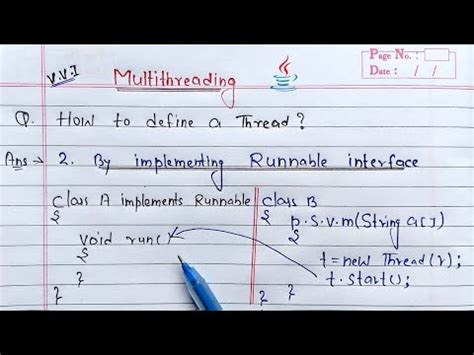 V.V.I
Multithreading
Page No. :
Date : / /
Q. How to define a Thread?
Ans → 2. By implementing Runnable interface
Class A implements Runnable
{
void run()
{
}
}
Class B
{
p.s.v.m(String a[])
{
t = new Thread(r);
t.start();
}
}